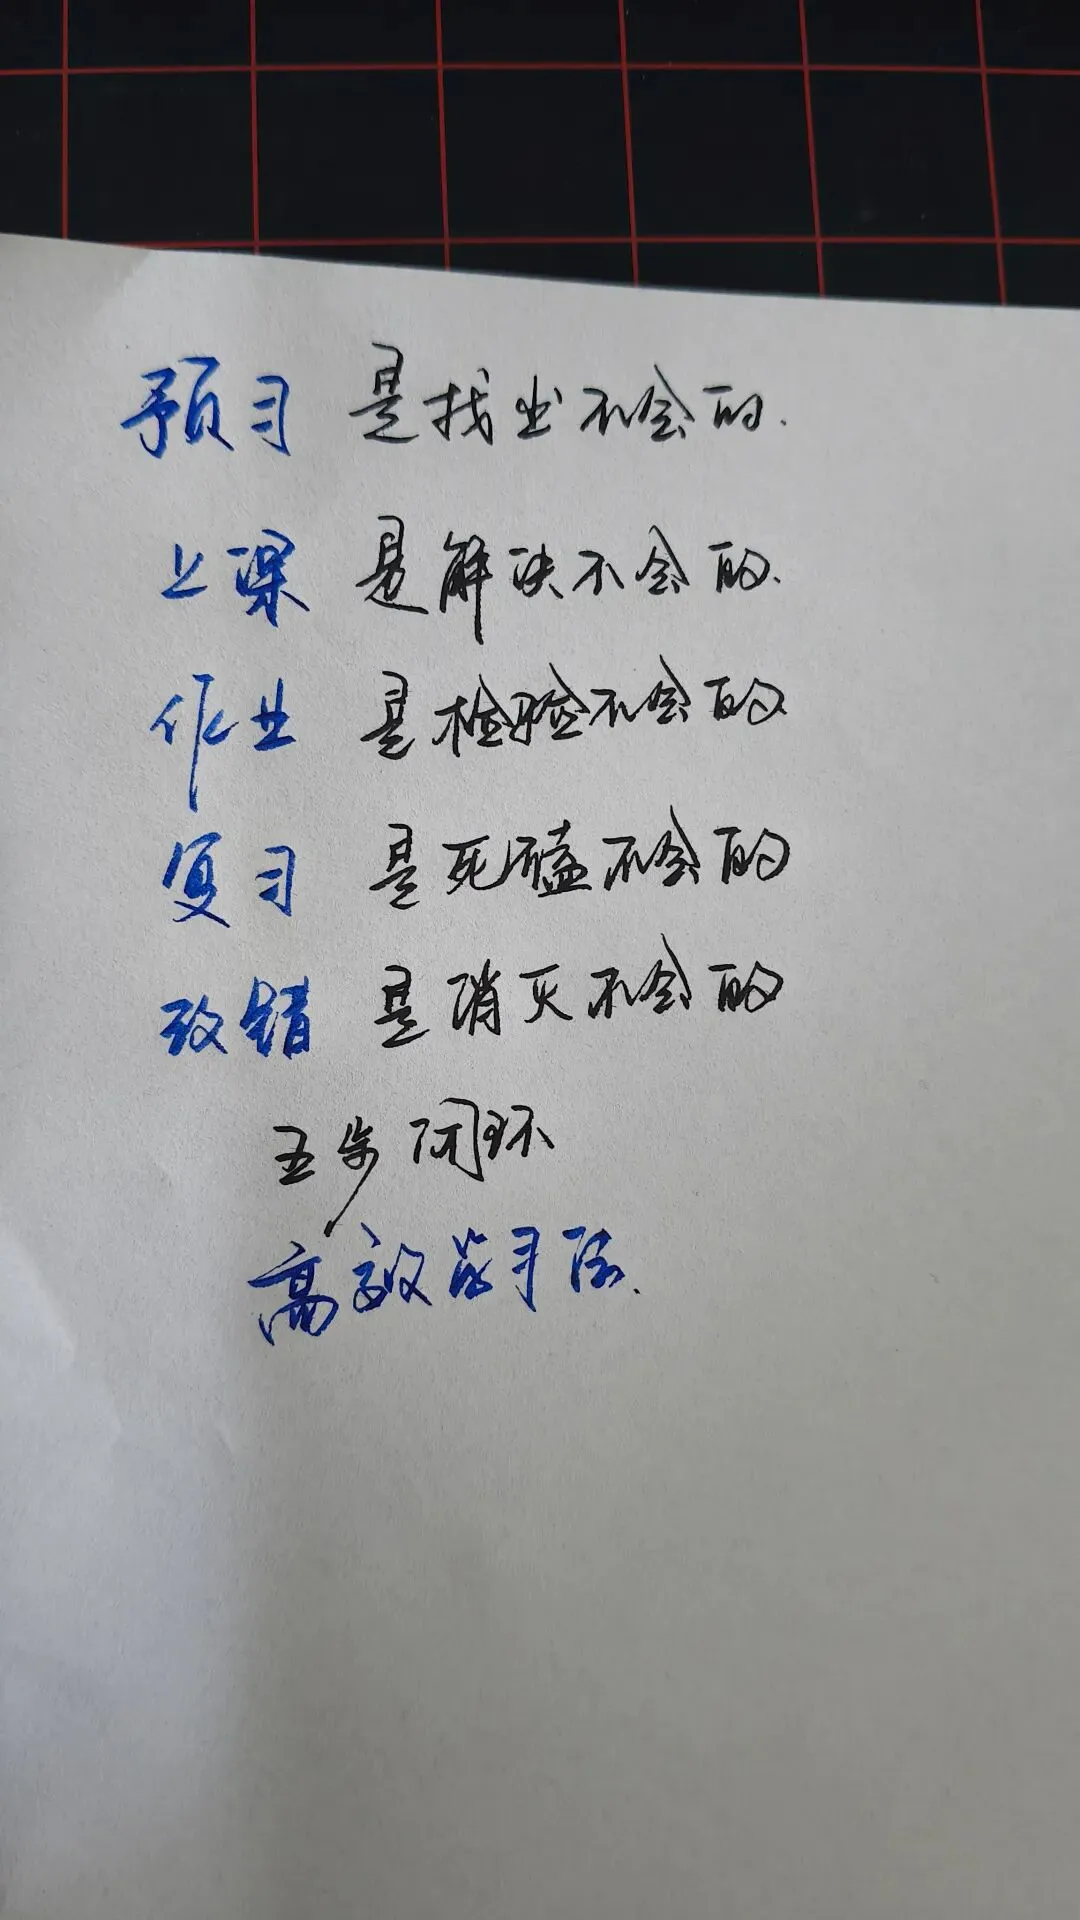 预习 是找出不会的.
上课 是解决不会的.
作业 是检验不会的
复习 是死磕不会的
改错 是消灭不会的
五步闭环
高效学习法.